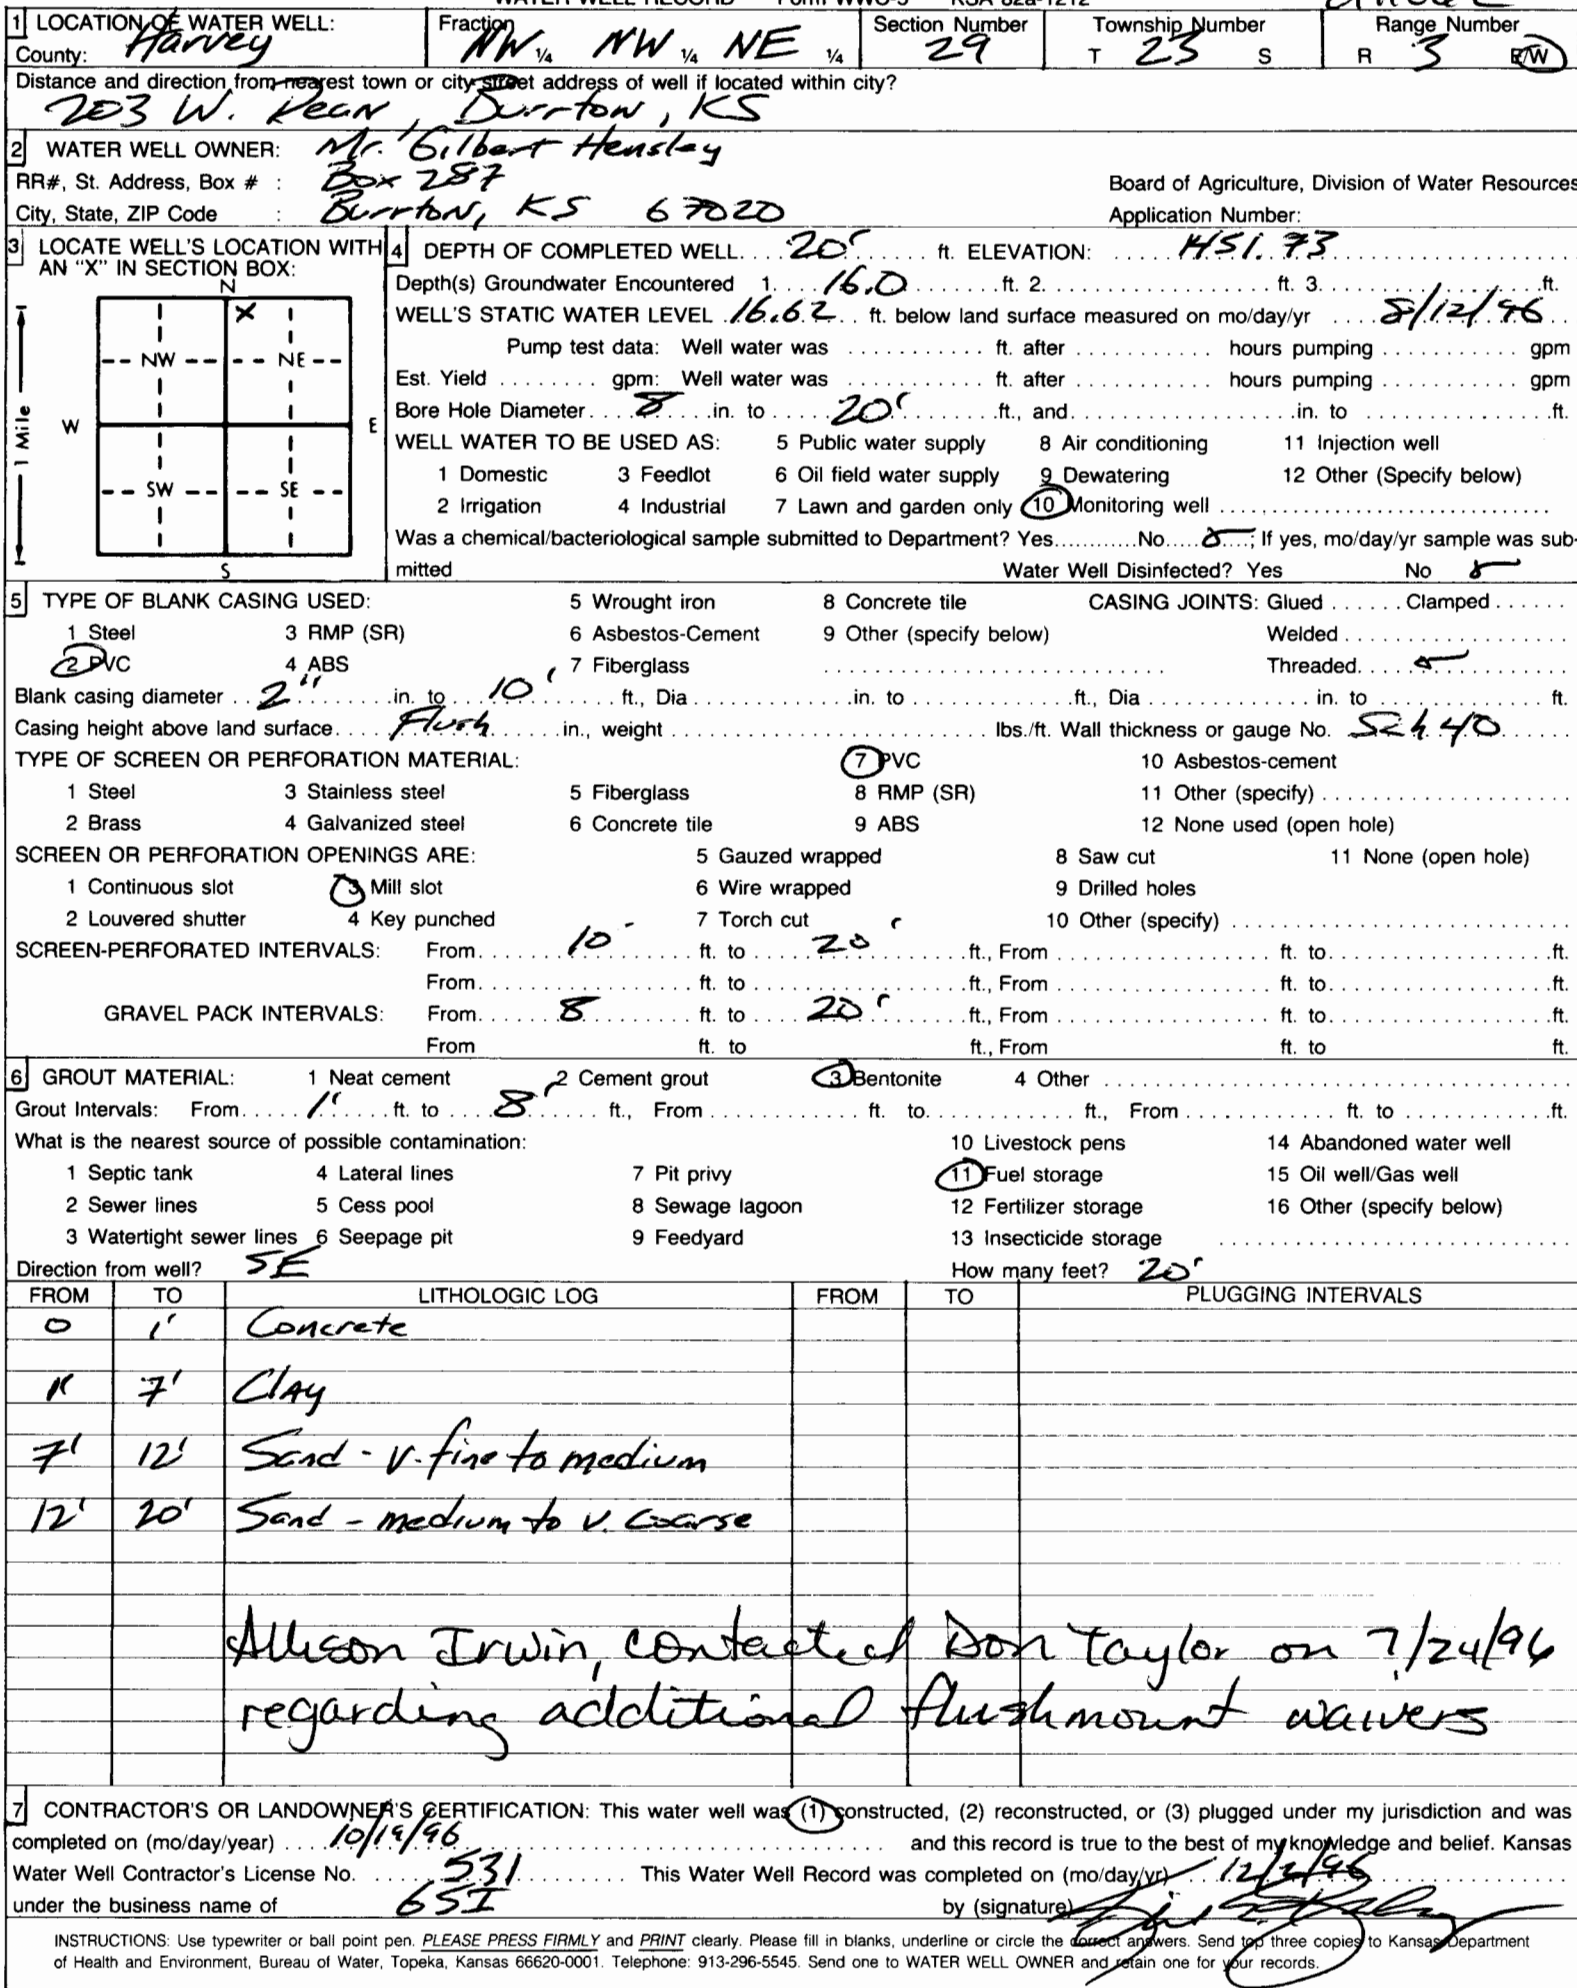 WATER WELL RECORD Form WWC-5 KSA 82a-1212
1 LOCATION OF WATER WELL: Fraction Section Number Township Number Range Number
County: Harvey NW ¼ NW ¼ NE ¼ 29 T 23 S R 3 E/W
Distance and direction from nearest town or city street address of well if located within city?
203 W. Dean, Burrton, KS
2 WATER WELL OWNER: Mr. Gilbert Hensley
RR#, St. Address, Box # : Box 287 Board of Agriculture, Division of Water Resources
City, State, ZIP Code : Burrton, KS 67020 Application Number:
3 LOCATE WELL'S LOCATION WITH AN "X" IN SECTION BOX:
N
X
NW NE
W E
SW SE
S
1 Mile
4 DEPTH OF COMPLETED WELL. 20' ft. ELEVATION:
Depth(s) Groundwater Encountered 1. 16.0 ft. 2. ft. 3. ft.
WELL'S STATIC WATER LEVEL 16.62 ft. below land surface measured on mo/day/yr 8/12/96
Pump test data: Well water was ft. after hours pumping gpm
Est. Yield gpm: Well water was ft. after hours pumping gpm
Bore Hole Diameter 8 in. to 20' ft., and in. to ft.
WELL WATER TO BE USED AS: 5 Public water supply 8 Air conditioning 11 Injection well
1 Domestic 3 Feedlot 6 Oil field water supply 9 Dewatering 12 Other (Specify below)
2 Irrigation 4 Industrial 7 Lawn and garden only 10 Monitoring well
Was a chemical/bacteriological sample submitted to Department? Yes No ; If yes, mo/day/yr sample was sub-
mitted Water Well Disinfected? Yes No
5 TYPE OF BLANK CASING USED: 5 Wrought iron 8 Concrete tile CASING JOINTS: Glued Clamped
1 Steel 3 RMP (SR) 6 Asbestos-Cement 9 Other (specify below) Welded
2 PVC 4 ABS 7 Fiberglass Threaded
Blank casing diameter 2" in. to 10' ft., Dia in. to ft., Dia in. to ft.
Casing height above land surface Flush in., weight lbs./ft. Wall thickness or gauge No. Sch 40
TYPE OF SCREEN OR PERFORATION MATERIAL: 7 PVC 10 Asbestos-cement
1 Steel 3 Stainless steel 5 Fiberglass 8 RMP (SR) 11 Other (specify)
2 Brass 4 Galvanized steel 6 Concrete tile 9 ABS 12 None used (open hole)
SCREEN OR PERFORATION OPENINGS ARE: 5 Gauzed wrapped 8 Saw cut 11 None (open hole)
1 Continuous slot 3 Mill slot 6 Wire wrapped 9 Drilled holes
2 Louvered shutter 4 Key punched 7 Torch cut 10 Other (specify)
SCREEN-PERFORATED INTERVALS: From 10' ft. to 20' ft., From ft. to ft.
From ft. to ft., From ft. to ft.
GRAVEL PACK INTERVALS: From 8 ft. to 20' ft., From ft. to ft.
From ft. to ft., From ft. to ft.
6 GROUT MATERIAL: 1 Neat cement 2 Cement grout 3 Bentonite 4 Other
Grout Intervals: From 1' ft. to 8' ft., From ft. to ft., From ft. to ft.
What is the nearest source of possible contamination: 10 Livestock pens 14 Abandoned water well
1 Septic tank 4 Lateral lines 7 Pit privy 11 Fuel storage 15 Oil well/Gas well
2 Sewer lines 5 Cess pool 8 Sewage lagoon 12 Fertilizer storage 16 Other (specify below)
3 Watertight sewer lines 6 Seepage pit 9 Feedyard 13 Insecticide storage
Direction from well? SE How many feet? 20'
FROM TO LITHOLOGIC LOG FROM TO PLUGGING INTERVALS
0 1' Concrete
1' 7' Clay
7' 12' Sand - v. fine to medium
12' 20' Sand - medium to v. coarse
Allison Irwin, contacted Don Taylor on 7/24/96
regarding additional flushmount waivers
7 CONTRACTOR'S OR LANDOWNER'S CERTIFICATION: This water well was (1) constructed, (2) reconstructed, or (3) plugged under my jurisdiction and was
completed on (mo/day/year) 10/19/96 and this record is true to the best of my knowledge and belief. Kansas
Water Well Contractor's License No. 531 This Water Well Record was completed on (mo/day/yr) 12/2/96
under the business name of GSI by (signature)
INSTRUCTIONS: Use typewriter or ball point pen. PLEASE PRESS FIRMLY and PRINT clearly. Please fill in blanks, underline or circle the correct answers. Send top three copies to Kansas Department
of Health and Environment, Bureau of Water, Topeka, Kansas 66620-0001. Telephone: 913-296-5545. Send one to WATER WELL OWNER and retain one for your records.